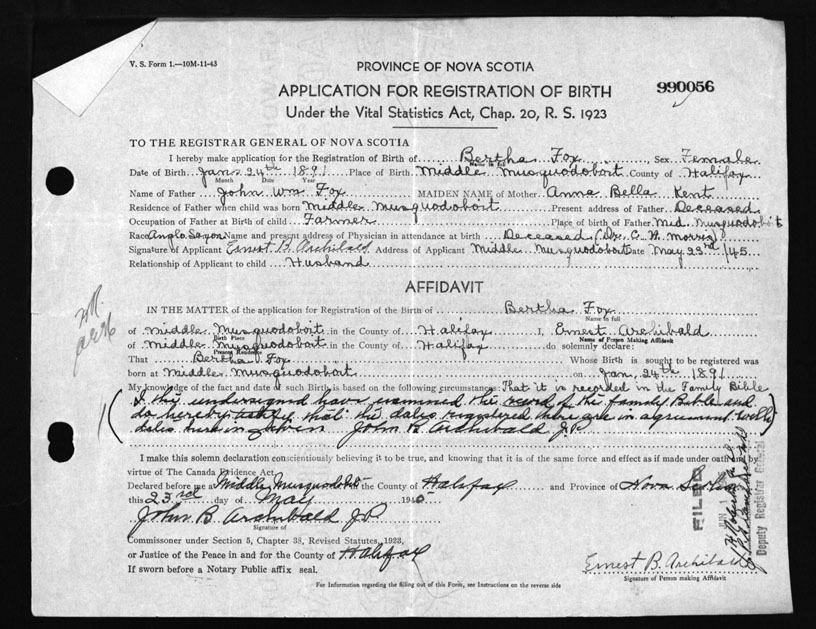 V. S. Form 1.—10M-11-43
PROVINCE OF NOVA SCOTIA
APPLICATION FOR REGISTRATION OF BIRTH
990056
Under the Vital Statistics Act, Chap. 20, R. S. 1923
TO THE REGISTRAR GENERAL OF NOVA SCOTIA
I hereby make application for the Registration of Birth of Bertha Fox Sex Female
Name in full
Date of Birth Jan 24th 1891 Place of Birth Middle Musquodoboit County of Halifax
Month Date Year
Name of Father John Wm Fox MAIDEN NAME of Mother Anna Bella Kent
Residence of Father when child was born Middle Musquodoboit Present address of Father Deceased
Occupation of Father at Birth of child Farmer Place of birth of Father Mid. Musquodoboit
Race Anglo Saxon Name and present address of Physician in attendance at birth Deceased (Dr. C. H. Morris)
Signature of Applicant Ernest B. Archibald Address of Applicant Middle Musquodoboit Date May 23rd /45
Relationship of Applicant to child Husband
AFFIDAVIT
IN THE MATTER of the application for Registration of the Birth of Bertha Fox
Name in full
of Middle Musquodoboit in the County of Halifax I, Ernest Archibald
Birth Place Name of Person Making Affidavit
of Middle Musquodoboit in the County of Halifax do solemnly declare:
Present Residence
That Bertha Fox Whose Birth is sought to be registered was
born at Middle Musquodoboit on Jan 24th 1891
My knowledge of the fact and date of such Birth is based on the following circumstances: That it is recorded in the Family Bible
I the undersigned have examined the record of the family Bible and
do hereby that the dates registered there are in agreement with
dates herein given John B Archibald J.P.
I make this solemn declaration conscientiously believing it to be true, and knowing that it is of the same force and effect as if made under oath and by
virtue of The Canada Evidence Act.
Declared before me at Middle Musquodoboit the County of Halifax and Province of Nova Scotia
this 23rd day of May 1945
John B Archibald J.P.
Signature of
Commissioner under Section 5, Chapter 38, Revised Statutes, 1923,
or Justice of the Peace in and for the County of Halifax
If sworn before a Notary Public affix seal.
Ernest B. Archibald
Signature of Person making Affidavit
For Information regarding the filling out of this Form, see Instructions on the reverse side
FILED
Deputy Registrar General